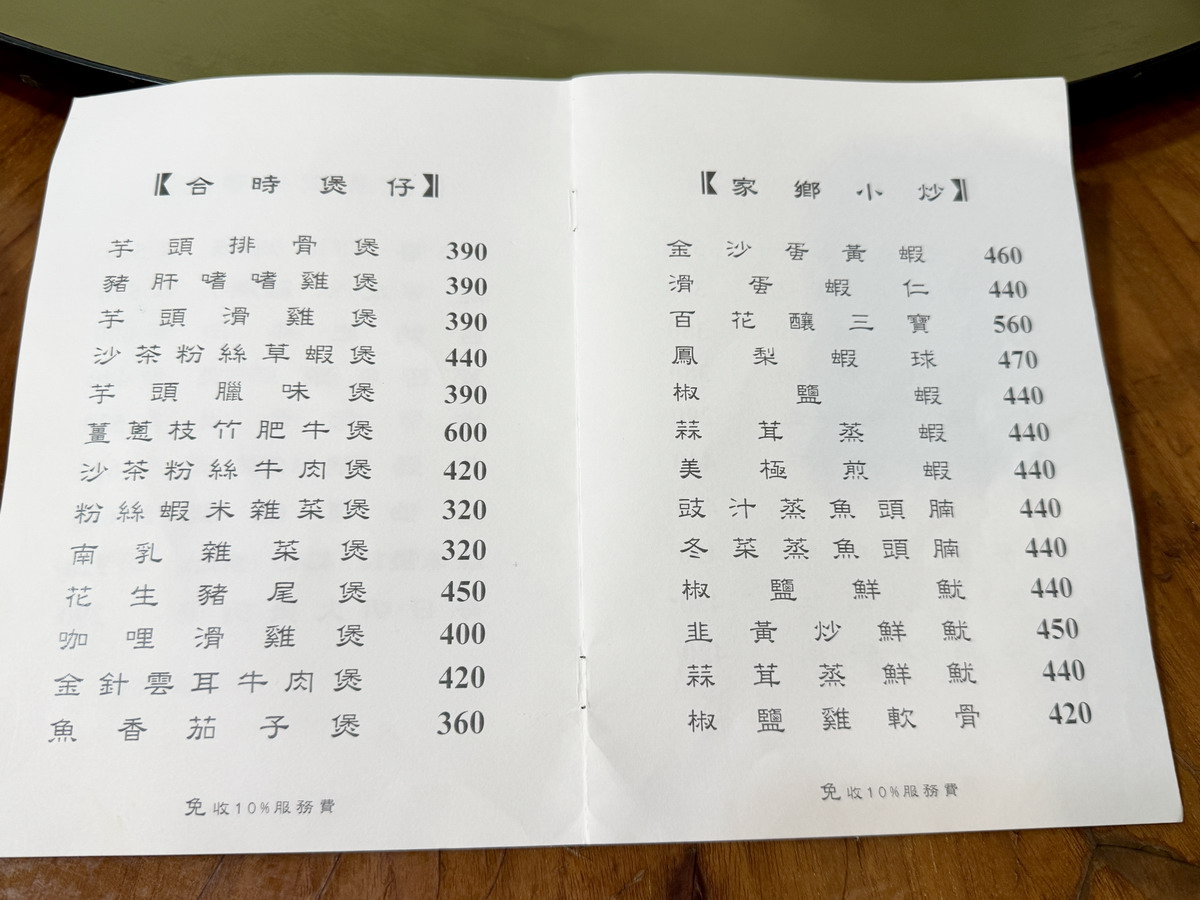 【合時煲仔】
芋頭排骨煲 390
豬肝嗜嗜雞煲 390
芋頭滑雞煲 390
沙茶粉絲草蝦煲 440
芋頭臘味煲 390
薑蔥枝竹肥牛煲 600
沙茶粉絲牛肉煲 420
粉絲蝦米雜菜煲 320
南乳雜菜煲 320
花生豬尾煲 450
咖哩滑雞煲 400
金針雲耳牛肉煲 420
魚香茄子煲 360
免收10%服務費
【家鄉小炒】
金沙蛋黃蝦 460
滑蛋蝦仁 440
百花釀三寶 560
鳳梨蝦球 470
椒鹽蝦 440
蒜茸蒸蝦 440
美極煎蝦 440
豉汁蒸魚頭腩 440
冬菜蒸魚頭腩 440
椒鹽鮮魷 440
韭黃炒鮮魷 450
蒜茸蒸鮮魷 440
椒鹽雞軟骨 420
免收10%服務費